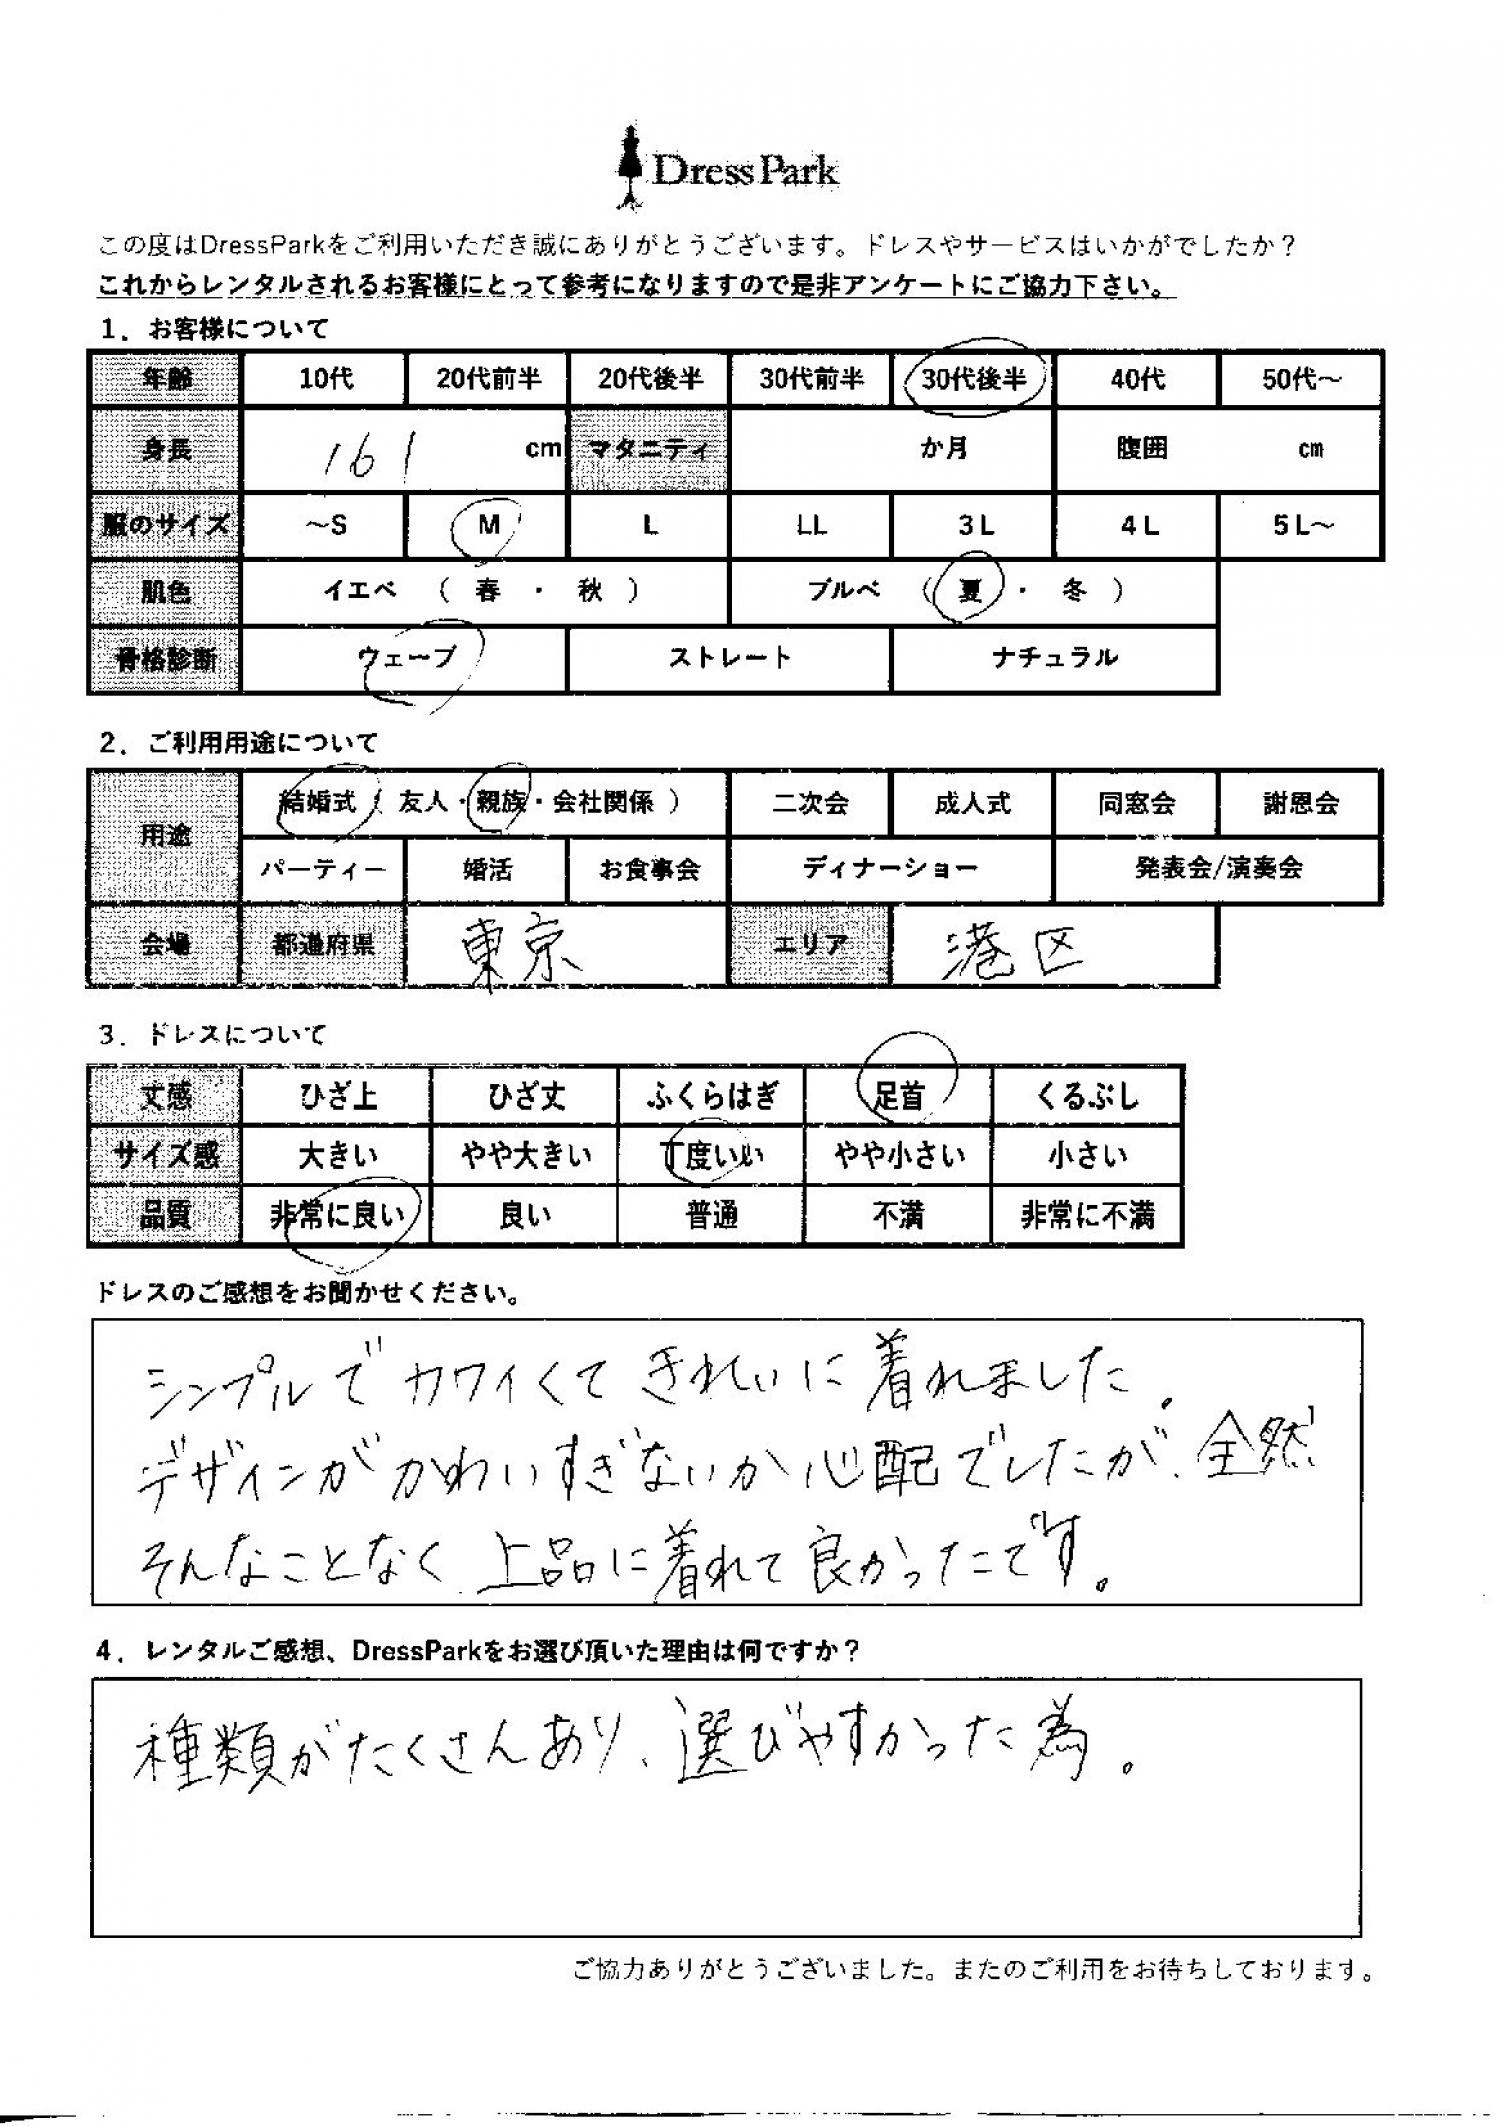 DressPark
この度はDressParkをご利用いただき誠にありがとうございます。ドレスやサービスはいかがでしたか？
これからレンタルされるお客様にとって参考になりますので是非アンケートにご協力下さい。
1．お客様について
年齢 10代 20代前半 20代後半 30代前半 30代後半 40代 50代～
身長 161 cm マタニティ か月 腹囲 cm
服のサイズ ～S M L LL 3L 4L 5L～
肌色 イエベ （ 春 ・ 秋 ） ブルベ （ 夏 ・ 冬 ）
骨格診断 ウェーブ ストレート ナチュラル
2．ご利用用途について
用途 結婚式（ 友人・親族・会社関係 ） 二次会 成人式 同窓会 謝恩会
パーティー 婚活 お食事会 ディナーショー 発表会/演奏会
会場 都道府県 東京 エリア 港区
3．ドレスについて
丈感 ひざ上 ひざ丈 ふくらはぎ 足首 くるぶし
サイズ感 大きい やや大きい 丁度いい やや小さい 小さい
品質 非常に良い 良い 普通 不満 非常に不満
ドレスのご感想をお聞かせください。
シンプルでカワイくてきれいに着れました。
デザインがかわいすぎないか心配でしたが、全然
そんなことなく、上品に着れて良かったです。
4．レンタルご感想、DressParkをお選び頂いた理由は何ですか？
種類がたくさんあり、選びやすかった為。
ご協力ありがとうございました。またのご利用をお待ちしております。